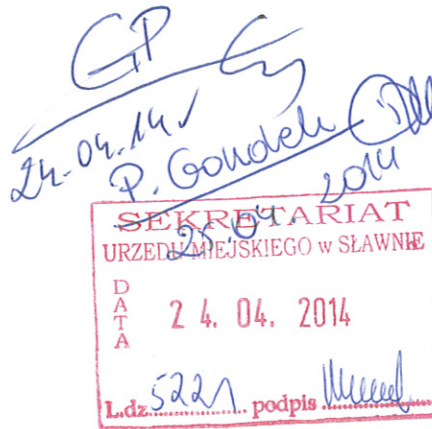 GP
24.04.14r
P. Gondek
25.04.2014
SEKRETARIAT
URZĘDU MIEJSKIEGO w SŁAWNIE
DATA
24. 04. 2014
L.dz. 5221 podpis